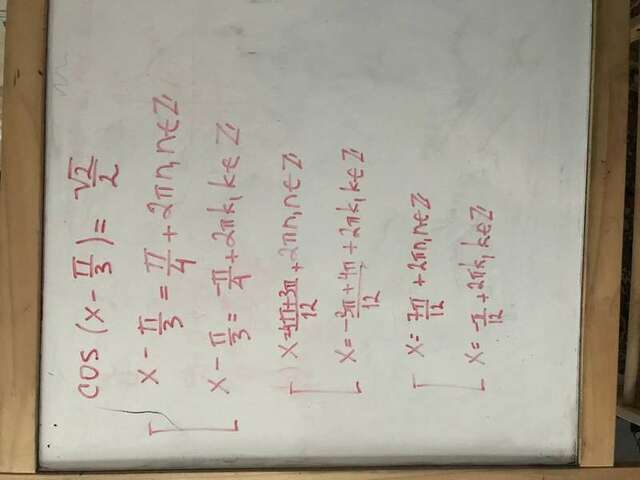 cos (x - π/3) = √2/2
x - π/3 = π/4 + 2πn, n ∈ Z
x - π/3 = -π/4 + 2πk, k ∈ Z
x = 4π+3π/12 + 2πn, n ∈ Z
x = -3π+4π/12 + 2πk, k ∈ Z
x = 7π/12 + 2πn, n ∈ Z
x = -π/12 + 2πk, k ∈ Z